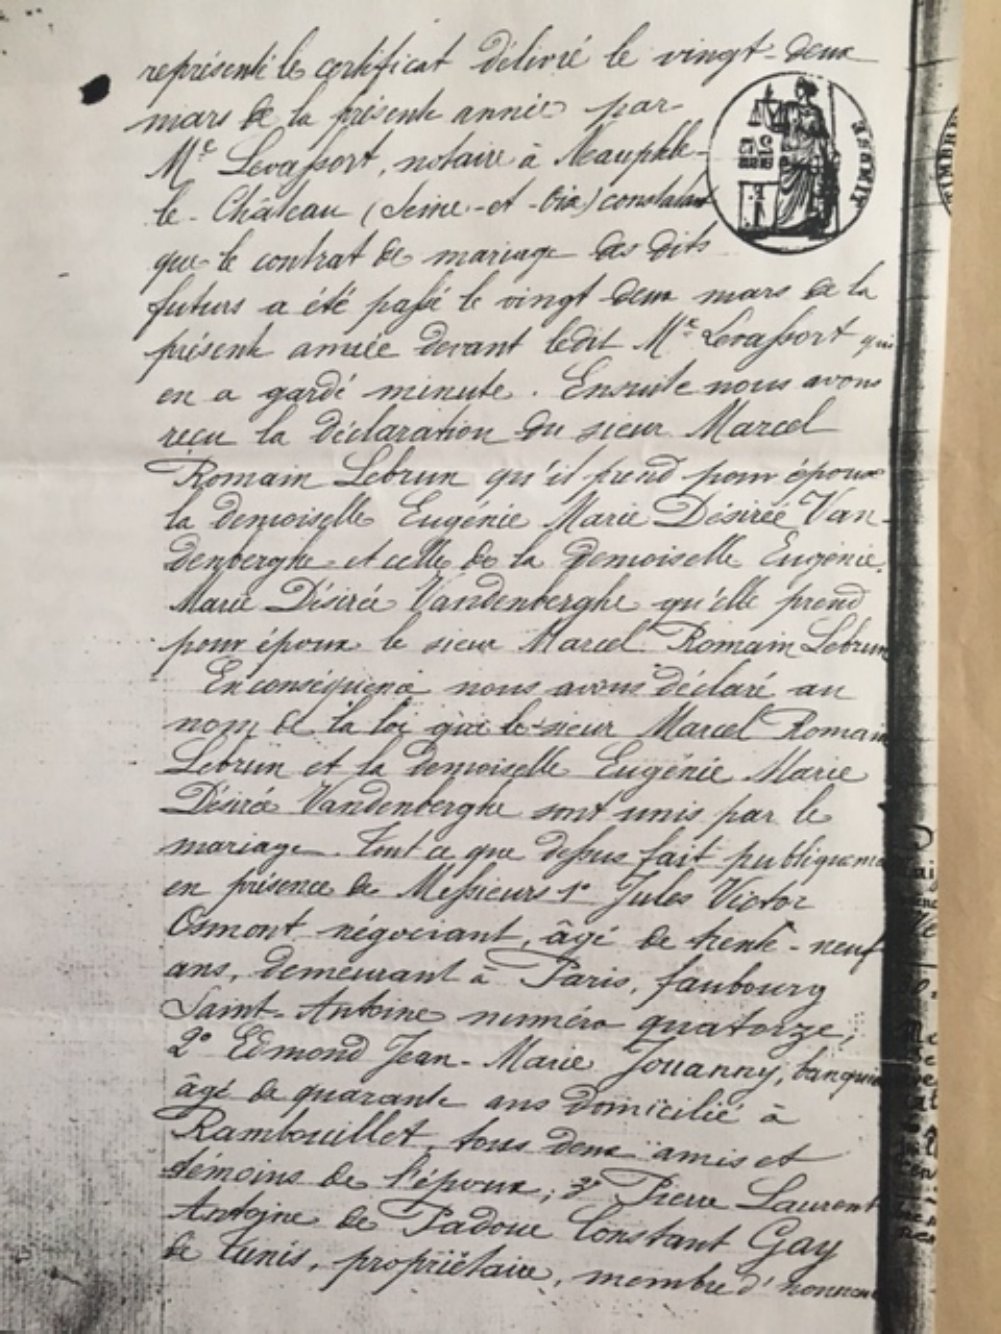 représenté le certificat délivré le vingt-deux
mars de la présente année par
Me Levassort, notaire à Neauphle-
le-Château (Seine-et-Oise) constatant
que le contrat de mariage des dits
futurs a été passé le vingt deux mars de la
présente année devant ledit Me Levassort qui
en a gardé minute. Ensuite nous avons
reçu la déclaration du sieur Marcel
Romain Lebrun qu'il prend pour épouse
la demoiselle Eugénie Marie Désirée Van-
denberghe et celle de la demoiselle Eugénie
Marie Désirée Vandenberghe qu'elle prend
pour époux le sieur Marcel Romain Lebrun
En conséquence nous avons déclaré au
nom de la loi que le sieur Marcel Romain
Lebrun et la demoiselle Eugénie Marie
Désirée Vandenberghe sont unis par le
mariage. Tout ce que dessus fait publiqueme
en présence de Messieurs 1° Jules Victor
Osmont négociant, âgé de trente-neuf
ans, demeurant à Paris, faubourg
Saint-Antoine numéro quatorze;
2° Edmond Jean-Marie Jouanny, banquier
âgé de quarante ans domicilié à
Rambouillet, tous deux amis et
témoins de l'époux; 3° Pierre Laurent
Antoine de Padoue Constant Gay
de Tunis, propriétaire, membre d'honneur
TIMBRE